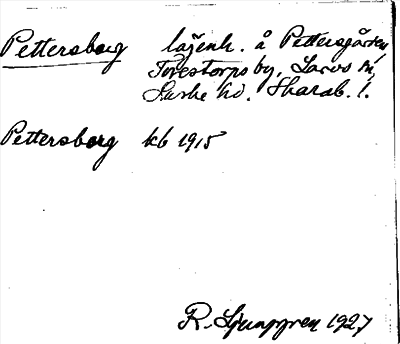 Pettersborg lägenh. å Pettersgården
Torestorps by, Lavos sn,
Laske hd. Skarab. l.
Pettersborg kb 1915
R. Ljunggren 1927